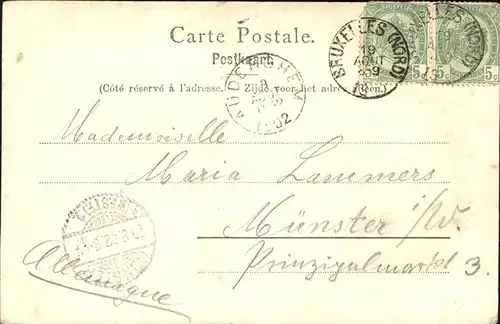 Carte Postale.
Postkaart.
(Côté réservé à l'adresse. Zijde voor het adres
BRUXELLES (NORD)
19
AOUT
AUDERGHEM
1902
5c
5c
Mademoiselle
Maria Lammers
Münster i/W.
Prinzipalmarkt 3.
Allemagne